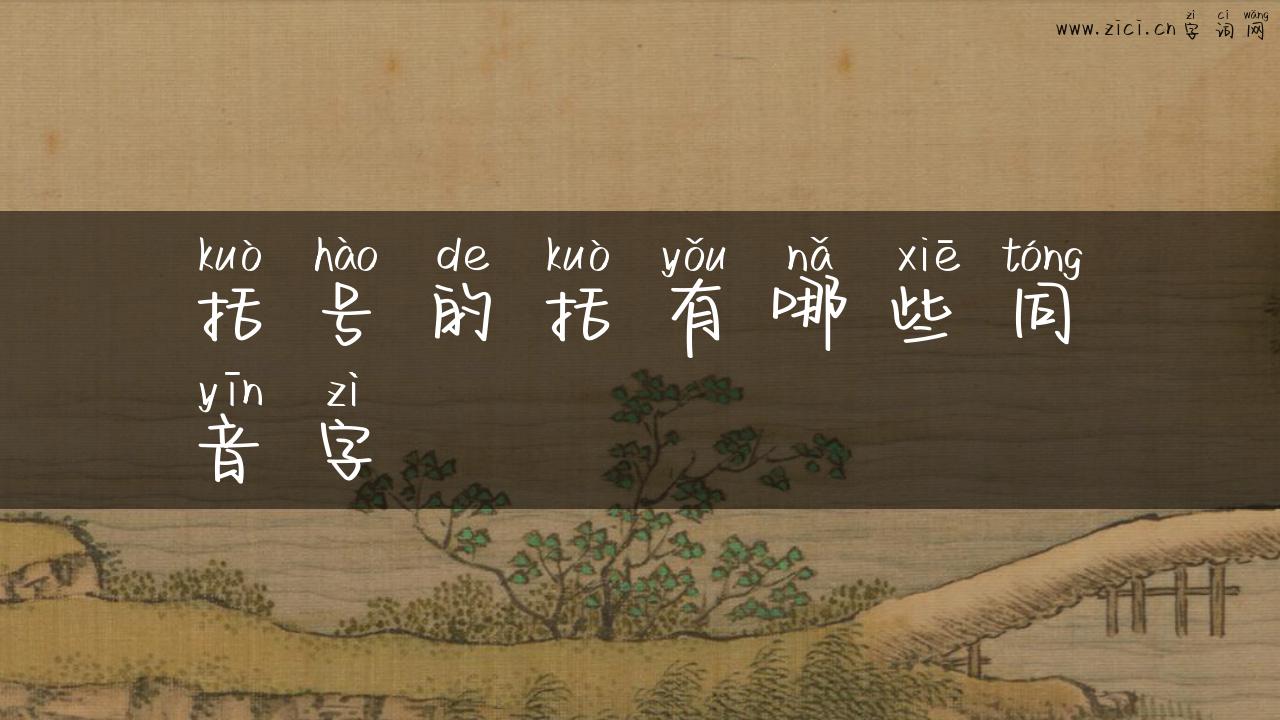 zì cí wǎng
www.zici.cn 字 词 网
kuò hào de kuò yǒu nǎ xiē tóng
括 号 的 括 有 哪 些 同
yīn zì
音 字